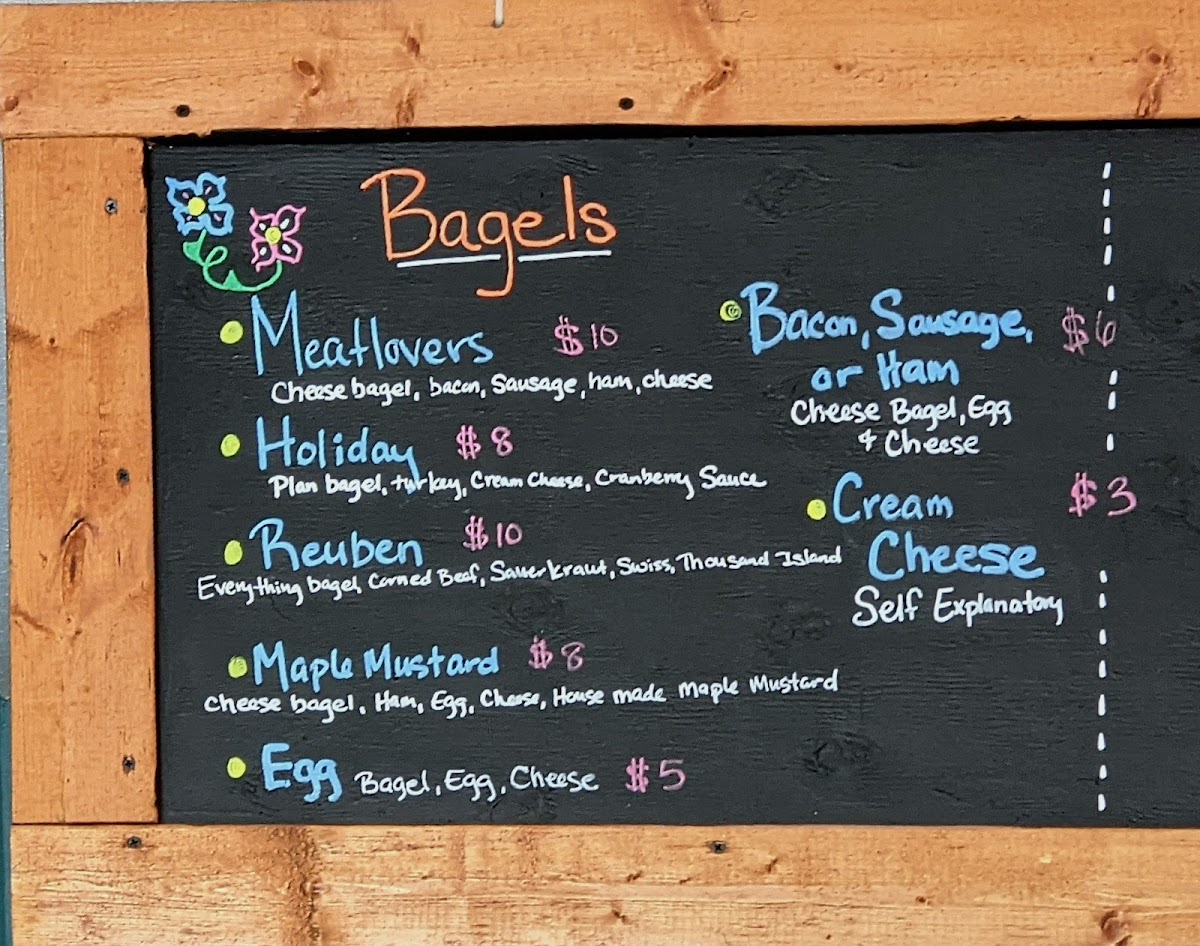 Bagels
Meatlovers $10
Cheese bagel, bacon, Sausage, ham, cheese
Holiday $8
Plan bagel, turkey, Cream Cheese, Cranberry Sauce
Reuben $10
Everything bagel, Corned Beef, Sauerkraut, Swiss, Thousand Island
Maple Mustard $8
Cheese bagel, Ham, Egg, Cheese, House made maple Mustard
Egg Bagel, Egg, Cheese $5
Bacon, Sausage, $6
or Ham
Cheese Bagel, Egg
& Cheese
Cream $3
Cheese
Self Explanatory